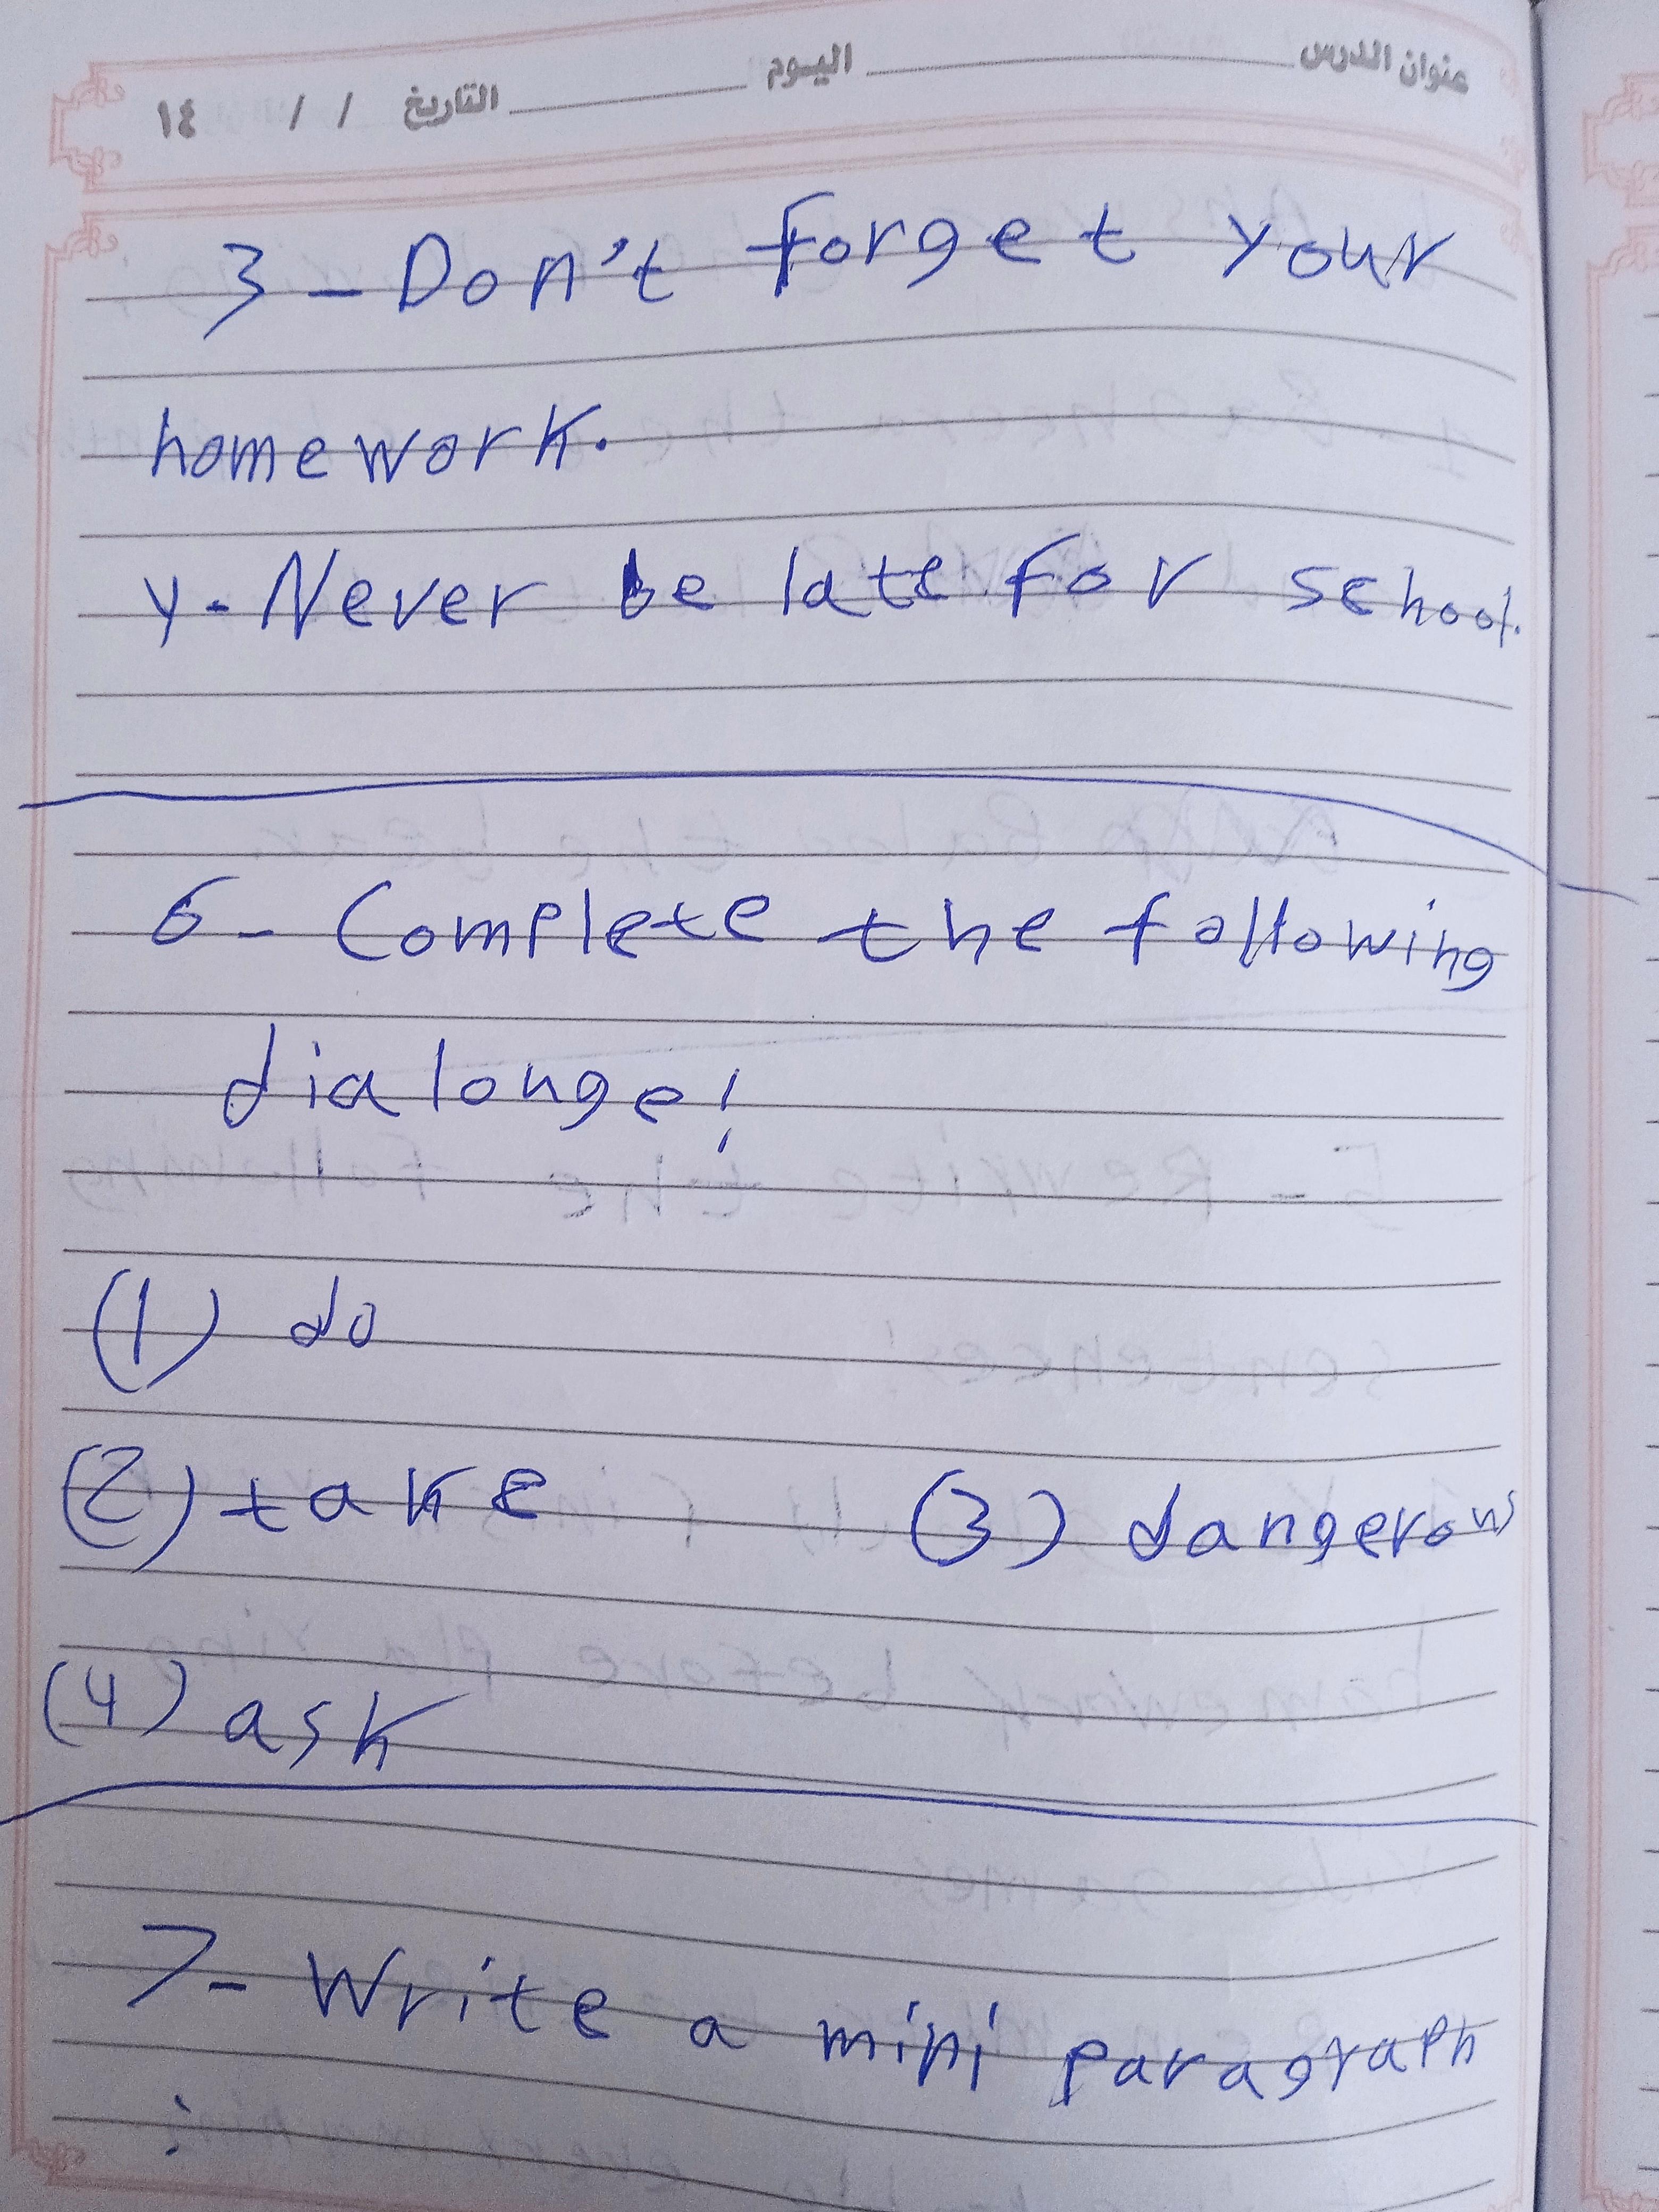 عنوان الدرس ــــــــــ اليوم ــــــــــ التاريخ / / ١٤
3 - Don't forget your
homework.
y - Never be late for school.
6 - Complete the following
dialonge!
(1) do
(2) take (3) dangerous
(4) ask
7 - Write a mini paragraph
: